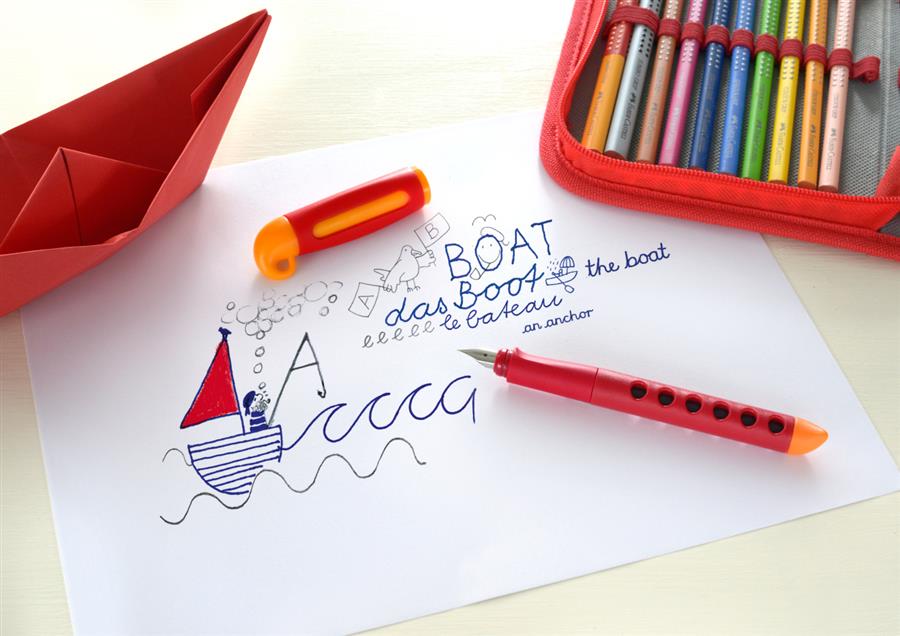 B
BOAT
A
das Boot
the boat
eeeee le bateau
an anchor
A